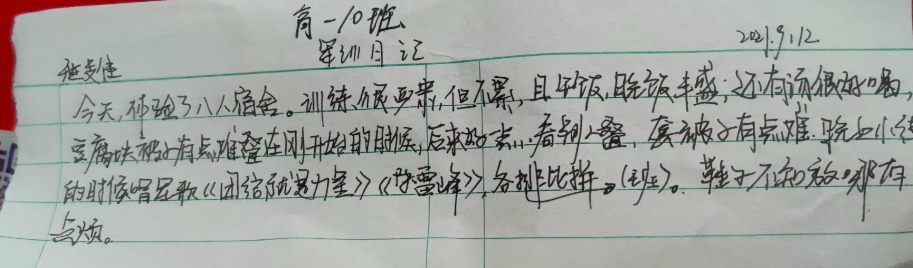 高一10班
军训日记
2021.9.12
今天,体验了八人宿舍。训练很严肃,但不累,且午饭,晚饭丰盛,还有汤很好喝,
豆腐块被子有点难叠在刚开始的时候,后来好点,看别人叠,套被子有点难.晚上小结
的时候唱军歌《团结就是力量》《学雷锋》,各排比拼。鞋子不知放哪有
点烦。